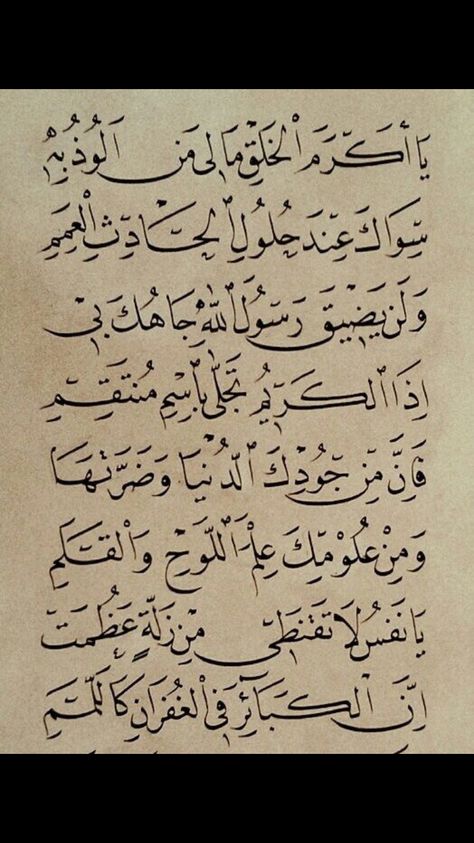 يَا أَكْرَمَ الْخَلْقِ مَا لِي مَنْ أَلُوذُ بِهِ
سِوَاكَ عِنْدَ حُلُولِ الْحَادِثِ الْعَمِمِ
وَلَنْ يَضِيقَ رَسُولَ اللهِ جَاهُكَ بِي
إِذَا الْكَرِيمُ تَجَلَّى بِاسْمِ مُنْتَقِمِ
فَإِنَّ مِنْ جُودِكَ الدُّنْيَا وَضَرَّتَهَا
وَمِنْ عُلُومِكَ عِلْمَ اللَّوْحِ وَالْقَلَمِ
يَا نَفْسُ لَا تَقْنَطِي مِنْ زَلَّةٍ عَظُمَتْ
إِنَّ الْكَبَائِرَ فِي الْغُفْرَانِ كَاللَّمَمِ